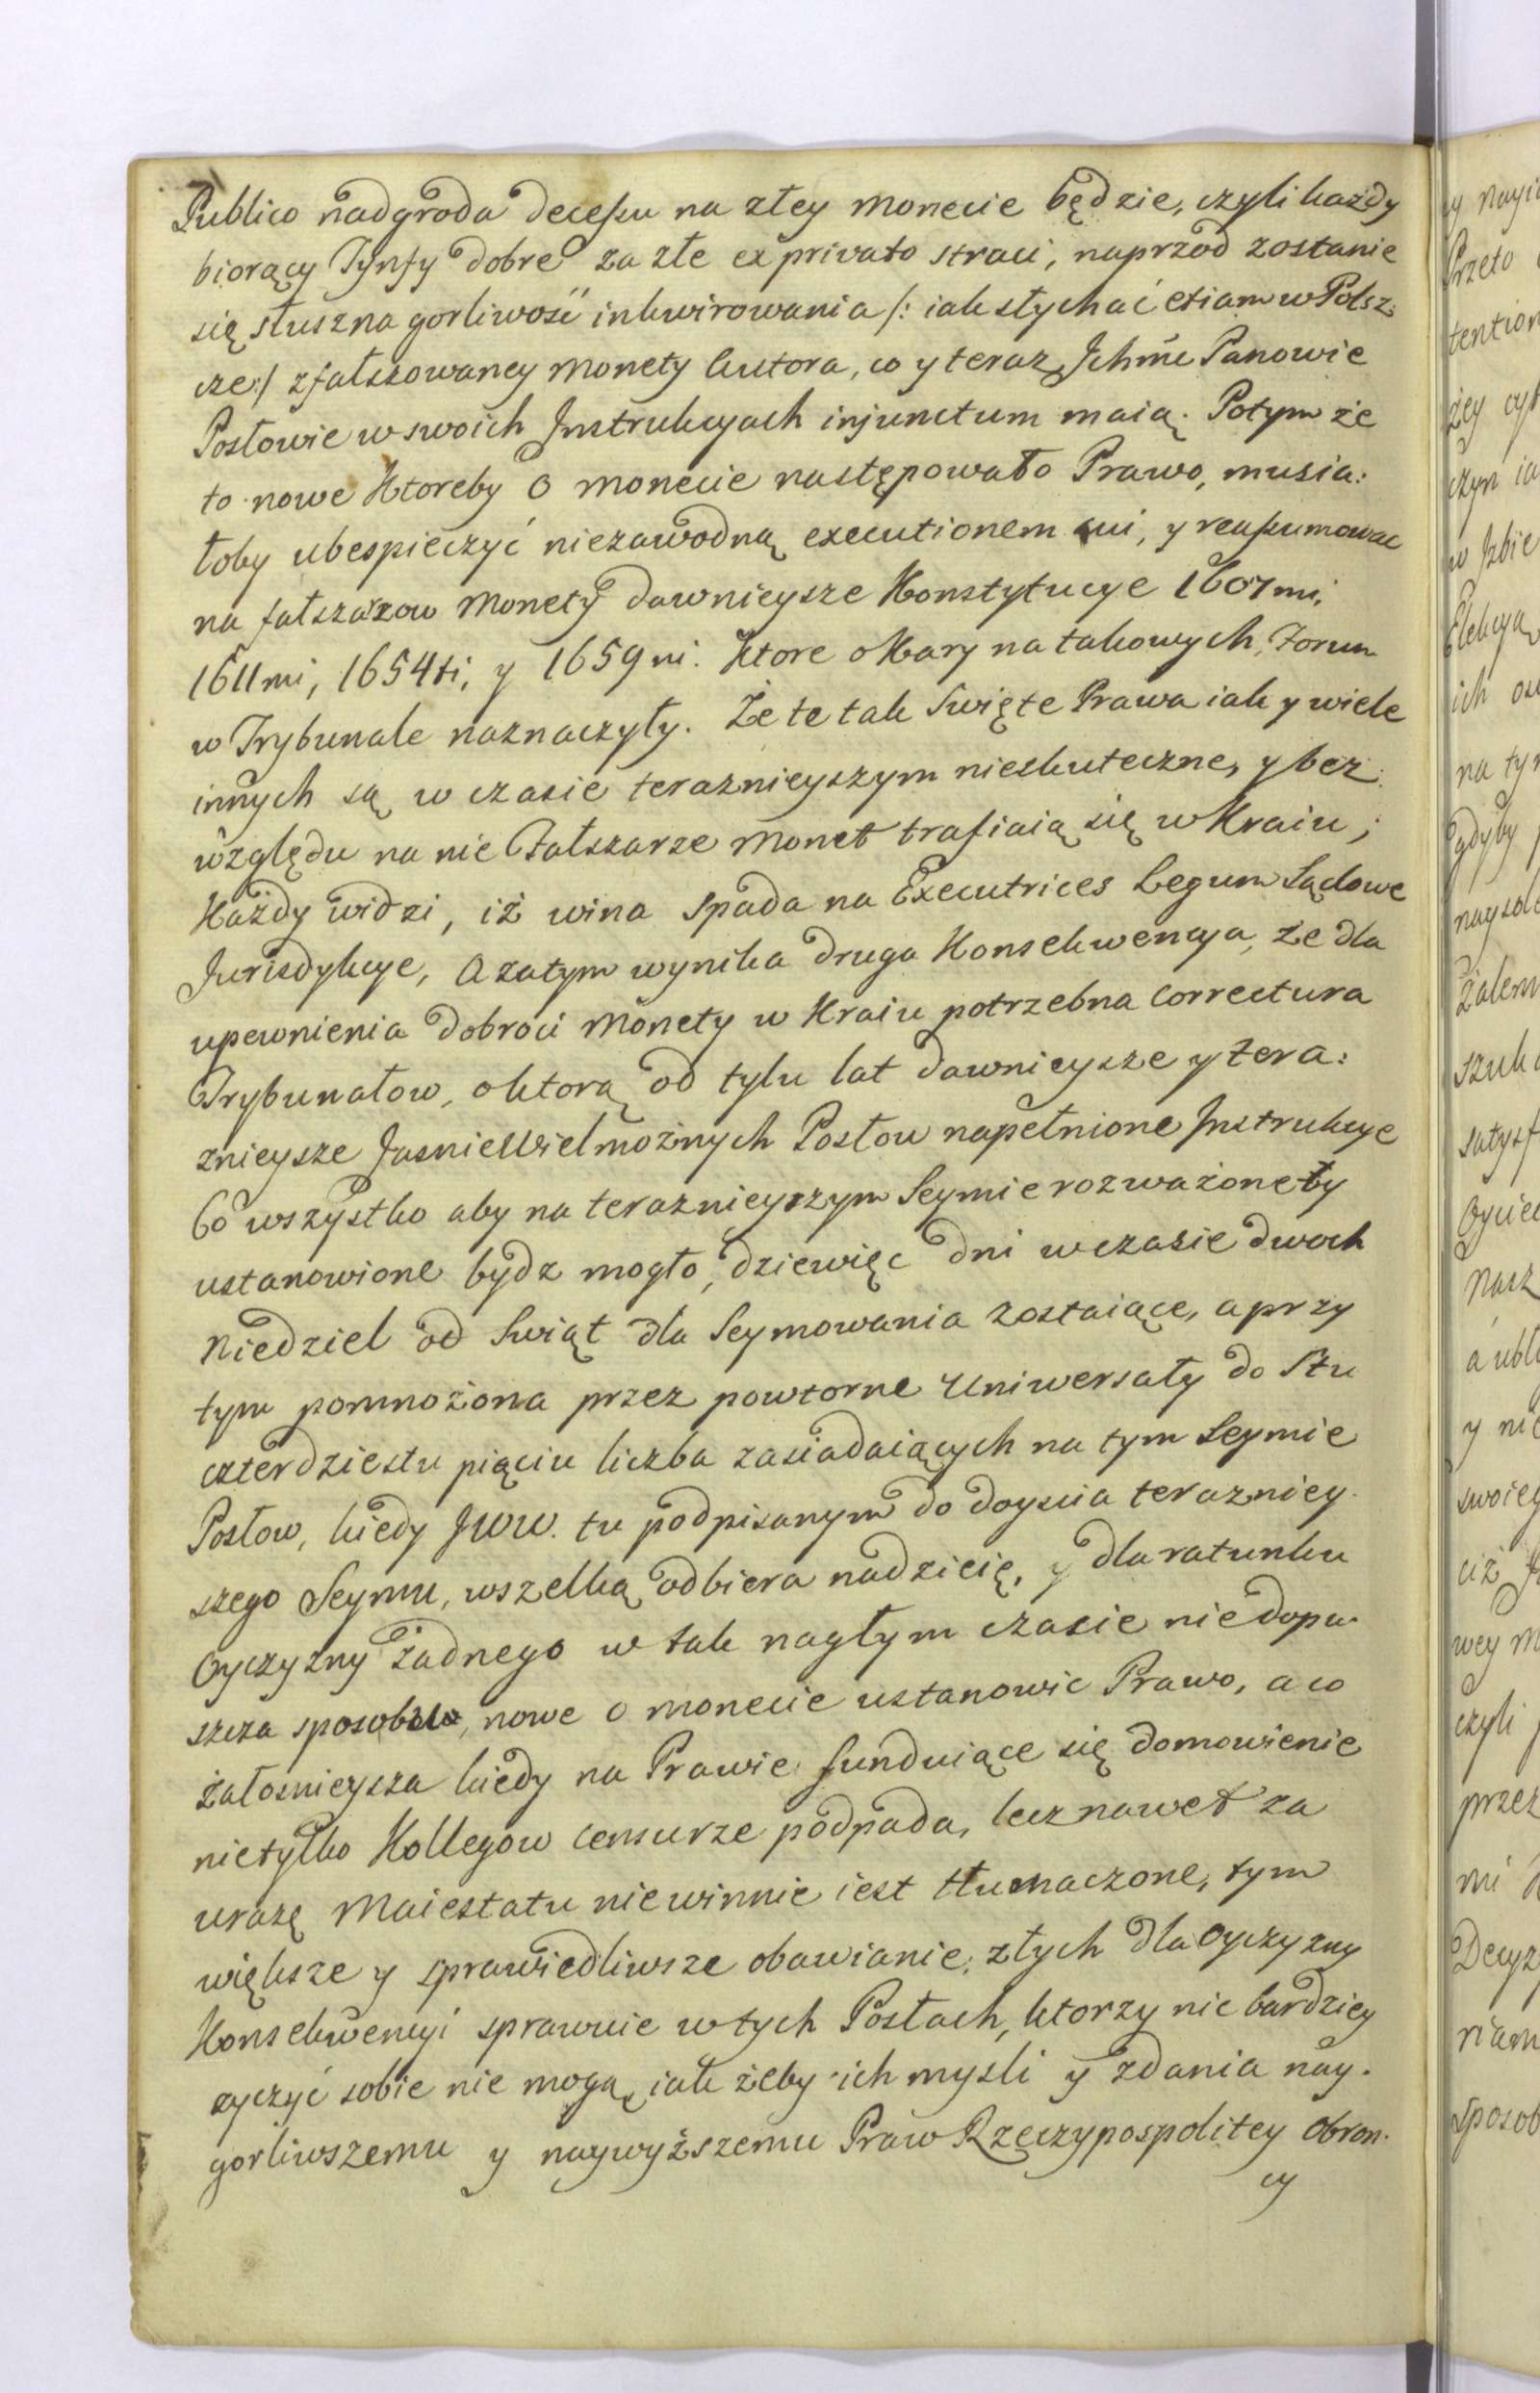 Publico nadgroda decessu na złey monecie będzie, czyli każdy
biorący Tynfy dobre za złe ex privato straci, naprzod zostanie
się słuszna gorliwość inkwirowania /: iak słychać etiam w Polsz:
cze :/ zfałszowaney monety Autora, co y teraz Jchmć Panowie
Posłowie w swoich Instrukcyach injunctum maią. Potym że
to nowe ktoreby o monecie następowało Prawo, musia:
łoby ubespieczyć niezawodną executionem sui, y reassumowac
na fałszarzow monety dawnieysze Konstytucye 1607mi,
1611mi, 1654ti, y 1659ni. ktore o Kary na takowych, Forum
w Trybunale naznaczyły. Że te tak Swięte Prawa iak y wiele
innych są w czasie teraznieyszym nieskuteczne, y bez
względu na nie Fałszarze monet trafiaią się w Kraiu;
Każdy widzi, iż wina spada na Executrices Legum Sądowe
Jurisdykcye, a zatym wynika druga Konsekwencya, że dla
upewnienia dobroci monety w Kraiu potrzebna correctura
Trybunałow, o ktorą od tylu lat dawnieysze y tera:
znieysze JasnieWielmożnych Posłow napełnione Instrukcye
Co wszystko aby na teraznieyszym Seymie rozważone by
ustanowione bydz mogło, dziewięc dni w czasie dwoch
niedziel od Swiąt dla Seymowania zostaiące, a przy
tym pomnożona przez powtorne Uniwersały do Stu
czterdziestu pięciu liczba zasiadaiących na tym Seymie
Posłow, kiedy JWW. tu podpisanym do doyscia terazniey
szego Seymu, wszelką odbiera nadzieię, y dla ratunku
Oyczyzny żadnego w tak nagłym czasie niedopu
szcza sposobu, nowe o monecie ustanowic Prawo, a co
żałosnieysza kiedy na Prawie funduiące się domowienie
nietylko Kollegow censurze podpada, lecz nawet za
urazę Maiestatu niewinnie iest tłumaczone, tym
większe y sprawiedliwsze obawianie, złych dla Oyczyzny
Konsekwencyi sprawuie w tych Posłach, ktorzy nic bardziey
zyczyć sobie nie mogą, iak żeby ich mysli y zdania nay.
gorliwszemu y naywyższemu Praw Rzeczypospolitey obron.
cy